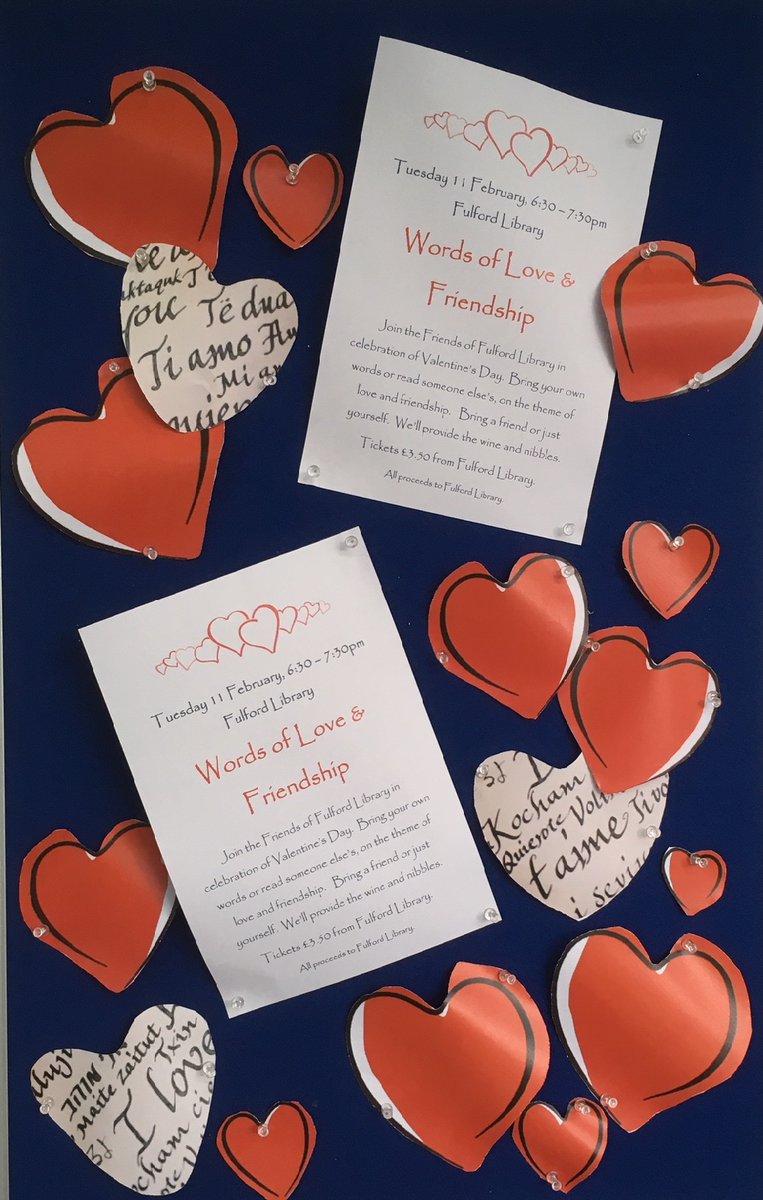 Tuesday 11 February, 6:30 – 7:30pm
Fulford Library
Words of Love &
Friendship
Join the Friends of Fulford Library in
celebration of Valentine's Day. Bring your own
words or read someone else's, on the theme of
love and friendship. Bring a friend or just
yourself. We'll provide the wine and nibbles.
Tickets £3.50 from Fulford Library.
All proceeds to Fulford Library.
you Të dua
Ti amo
Mi
Tuesday 11 February, 6:30 – 7:30pm
Fulford Library
Words of Love &
Friendship
Join the Friends of Fulford Library in
celebration of Valentine's Day. Bring your own
words or read someone else's, on the theme of
love and friendship. Bring a friend or just
yourself. We'll provide the wine and nibbles.
Tickets £3.50 from Fulford Library.
All proceeds to Fulford Library.
Kocham
Quiesote
t'aime
Maite zaitut
Txin
I love